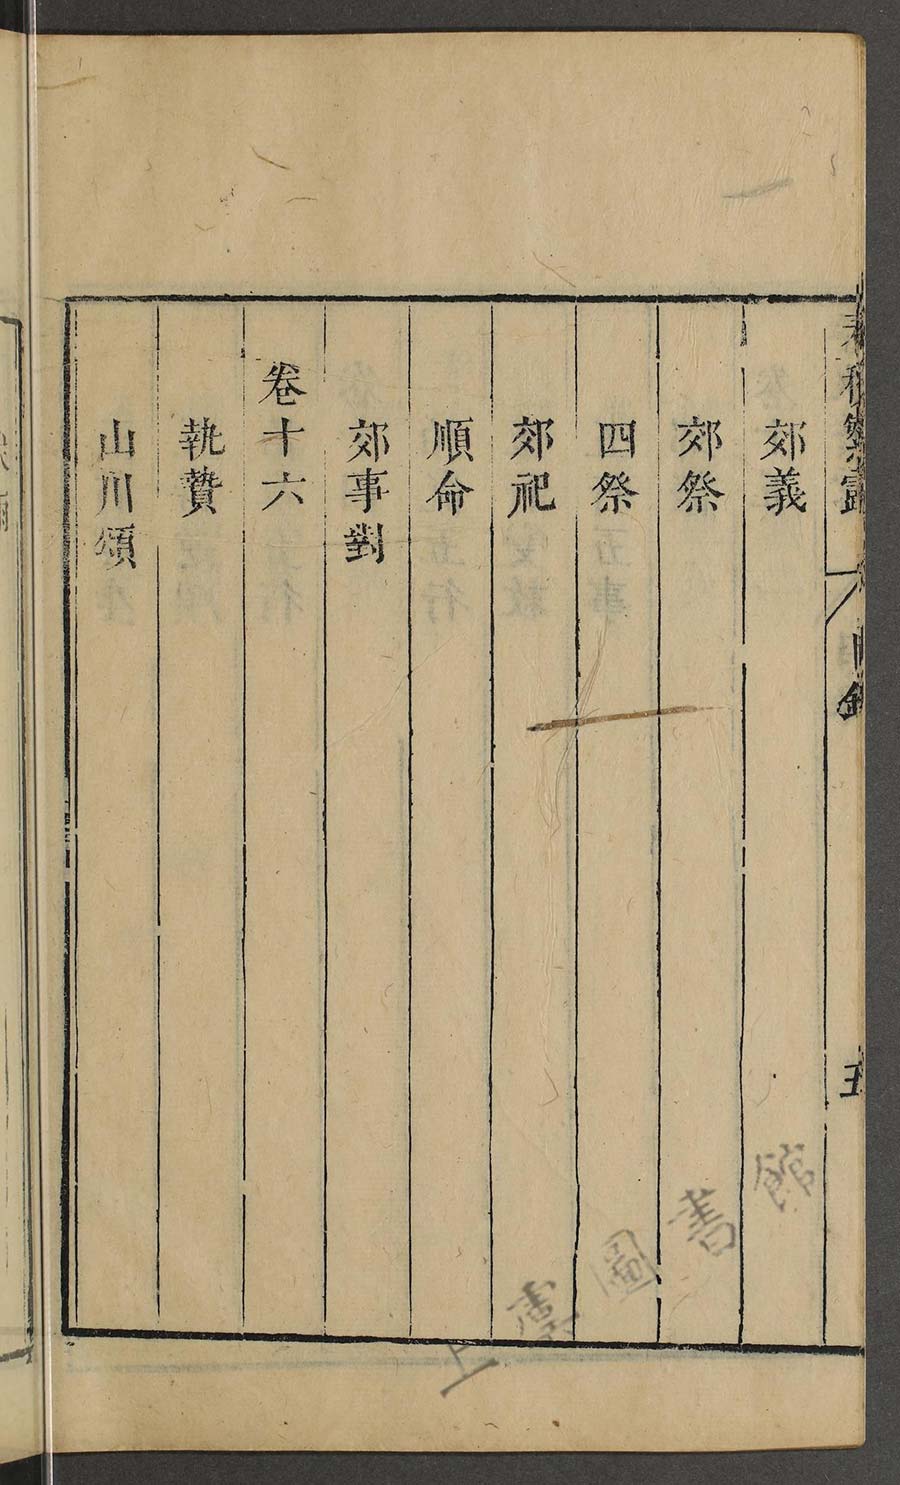 郊義
郊祭
四祭
郊祀
順命
郊事對
卷十六
執贄
山川頌
五
上
圖書館